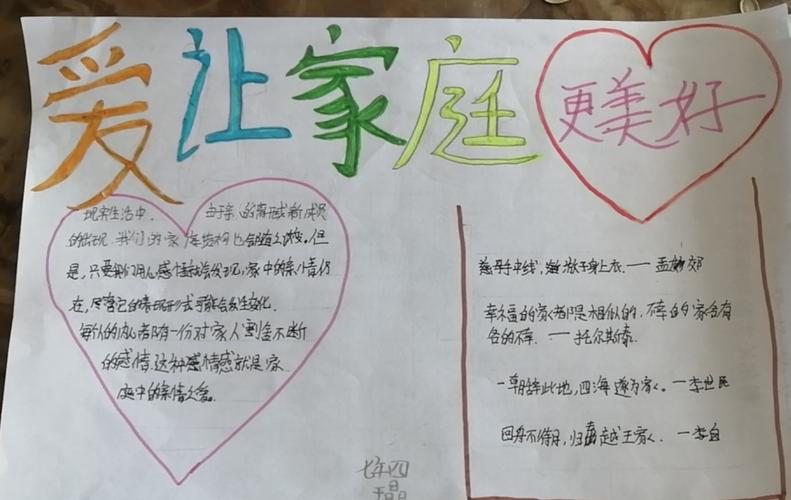 爱让家庭更美好
现实生活中，
的出现，我们的家庭结构也会随之改变。但
是，只要我们用心感悟就会发现，家中的亲情仍
在，尽管它的表现形式可能会发生变化。
每个人的心中都有一份对家人割舍不断
的感情，这种感情就是家
庭中的亲情之爱。
慈母手中线，游子身上衣。——孟郊
幸福的家都是相似的，不幸的家各有
各的不幸。——托尔斯泰
一朝辞此地，四海遂为家。——李世民
回舟不待月，归去越王家。——李白